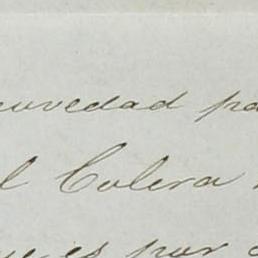 uvedad pa
l Colera
es por